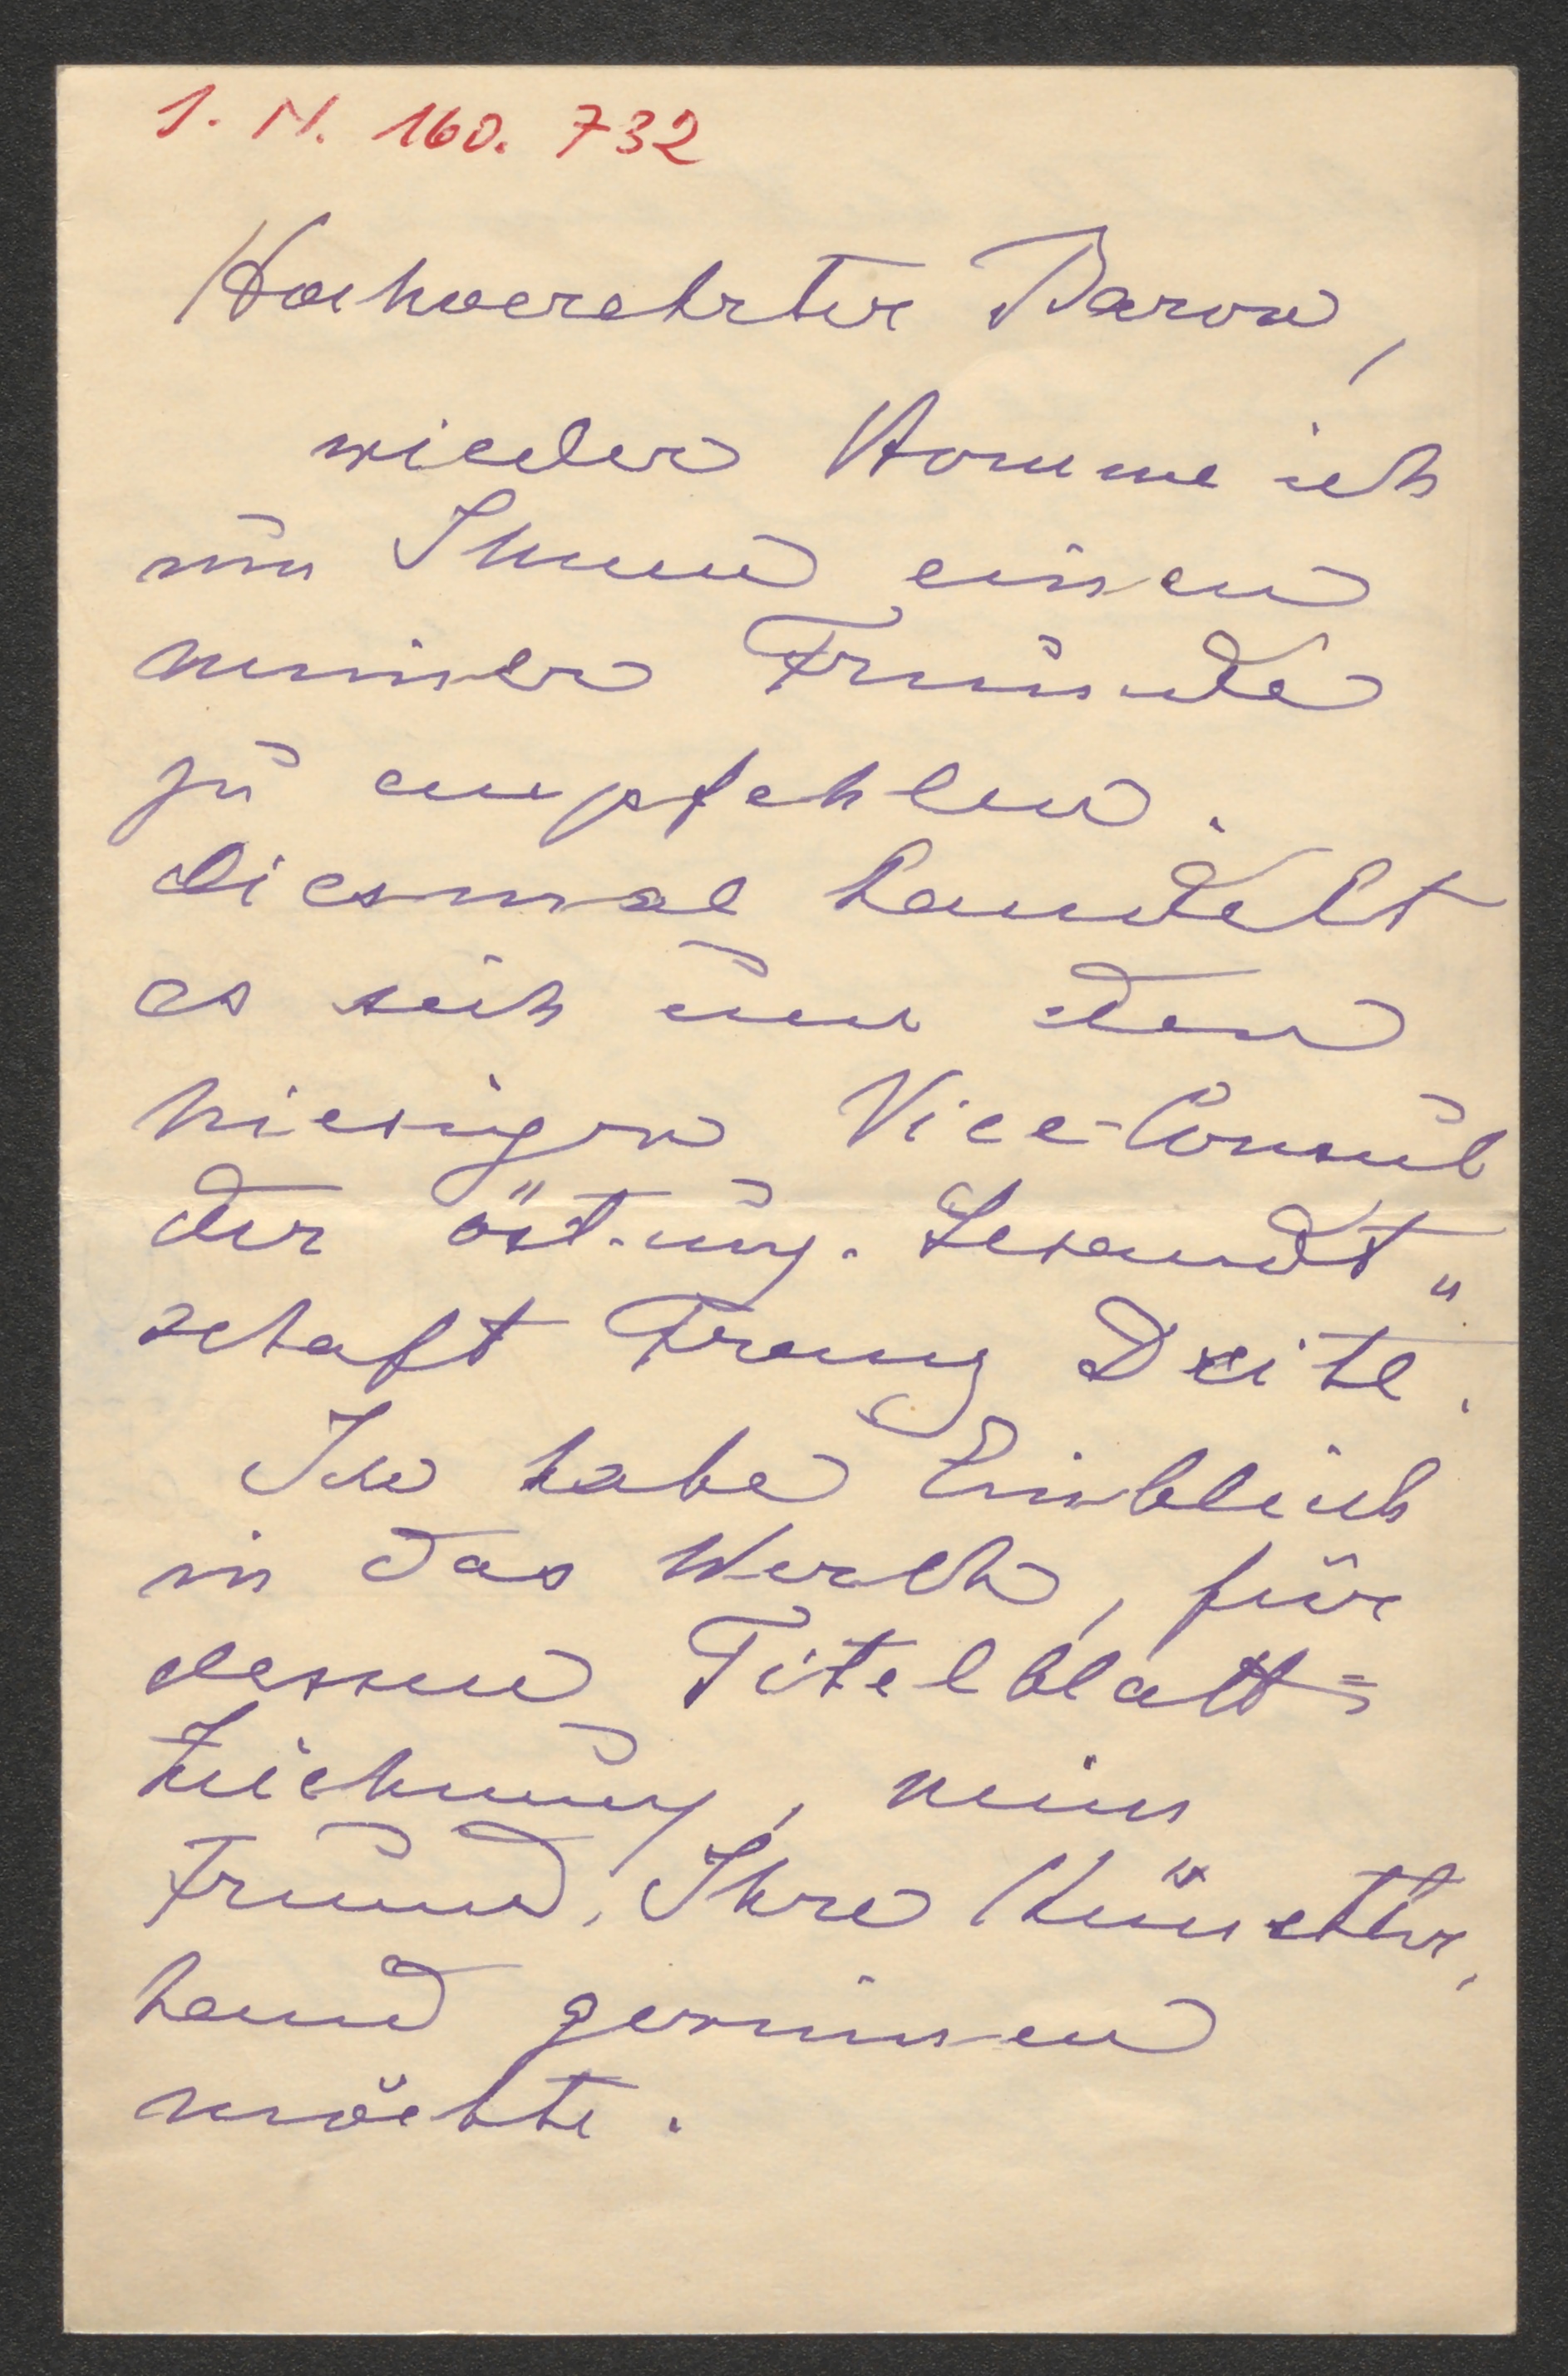 I. N. 160.732
Hochverehrter Baron,
wieder komme ich
um Ihnen einen
meiner Freunde
zu empfehlen.
Diesmal handelt
es sich um den
hiesigen Vice-Consul
der öst. ung. Gesandt„
schaft Franz Deite.
Ich habe Einblick
in das Werck, für
dessen Titelblatt=
Zeichnung, mein
Freund, Ihre Künstler,
hand gewinnen
möchte.